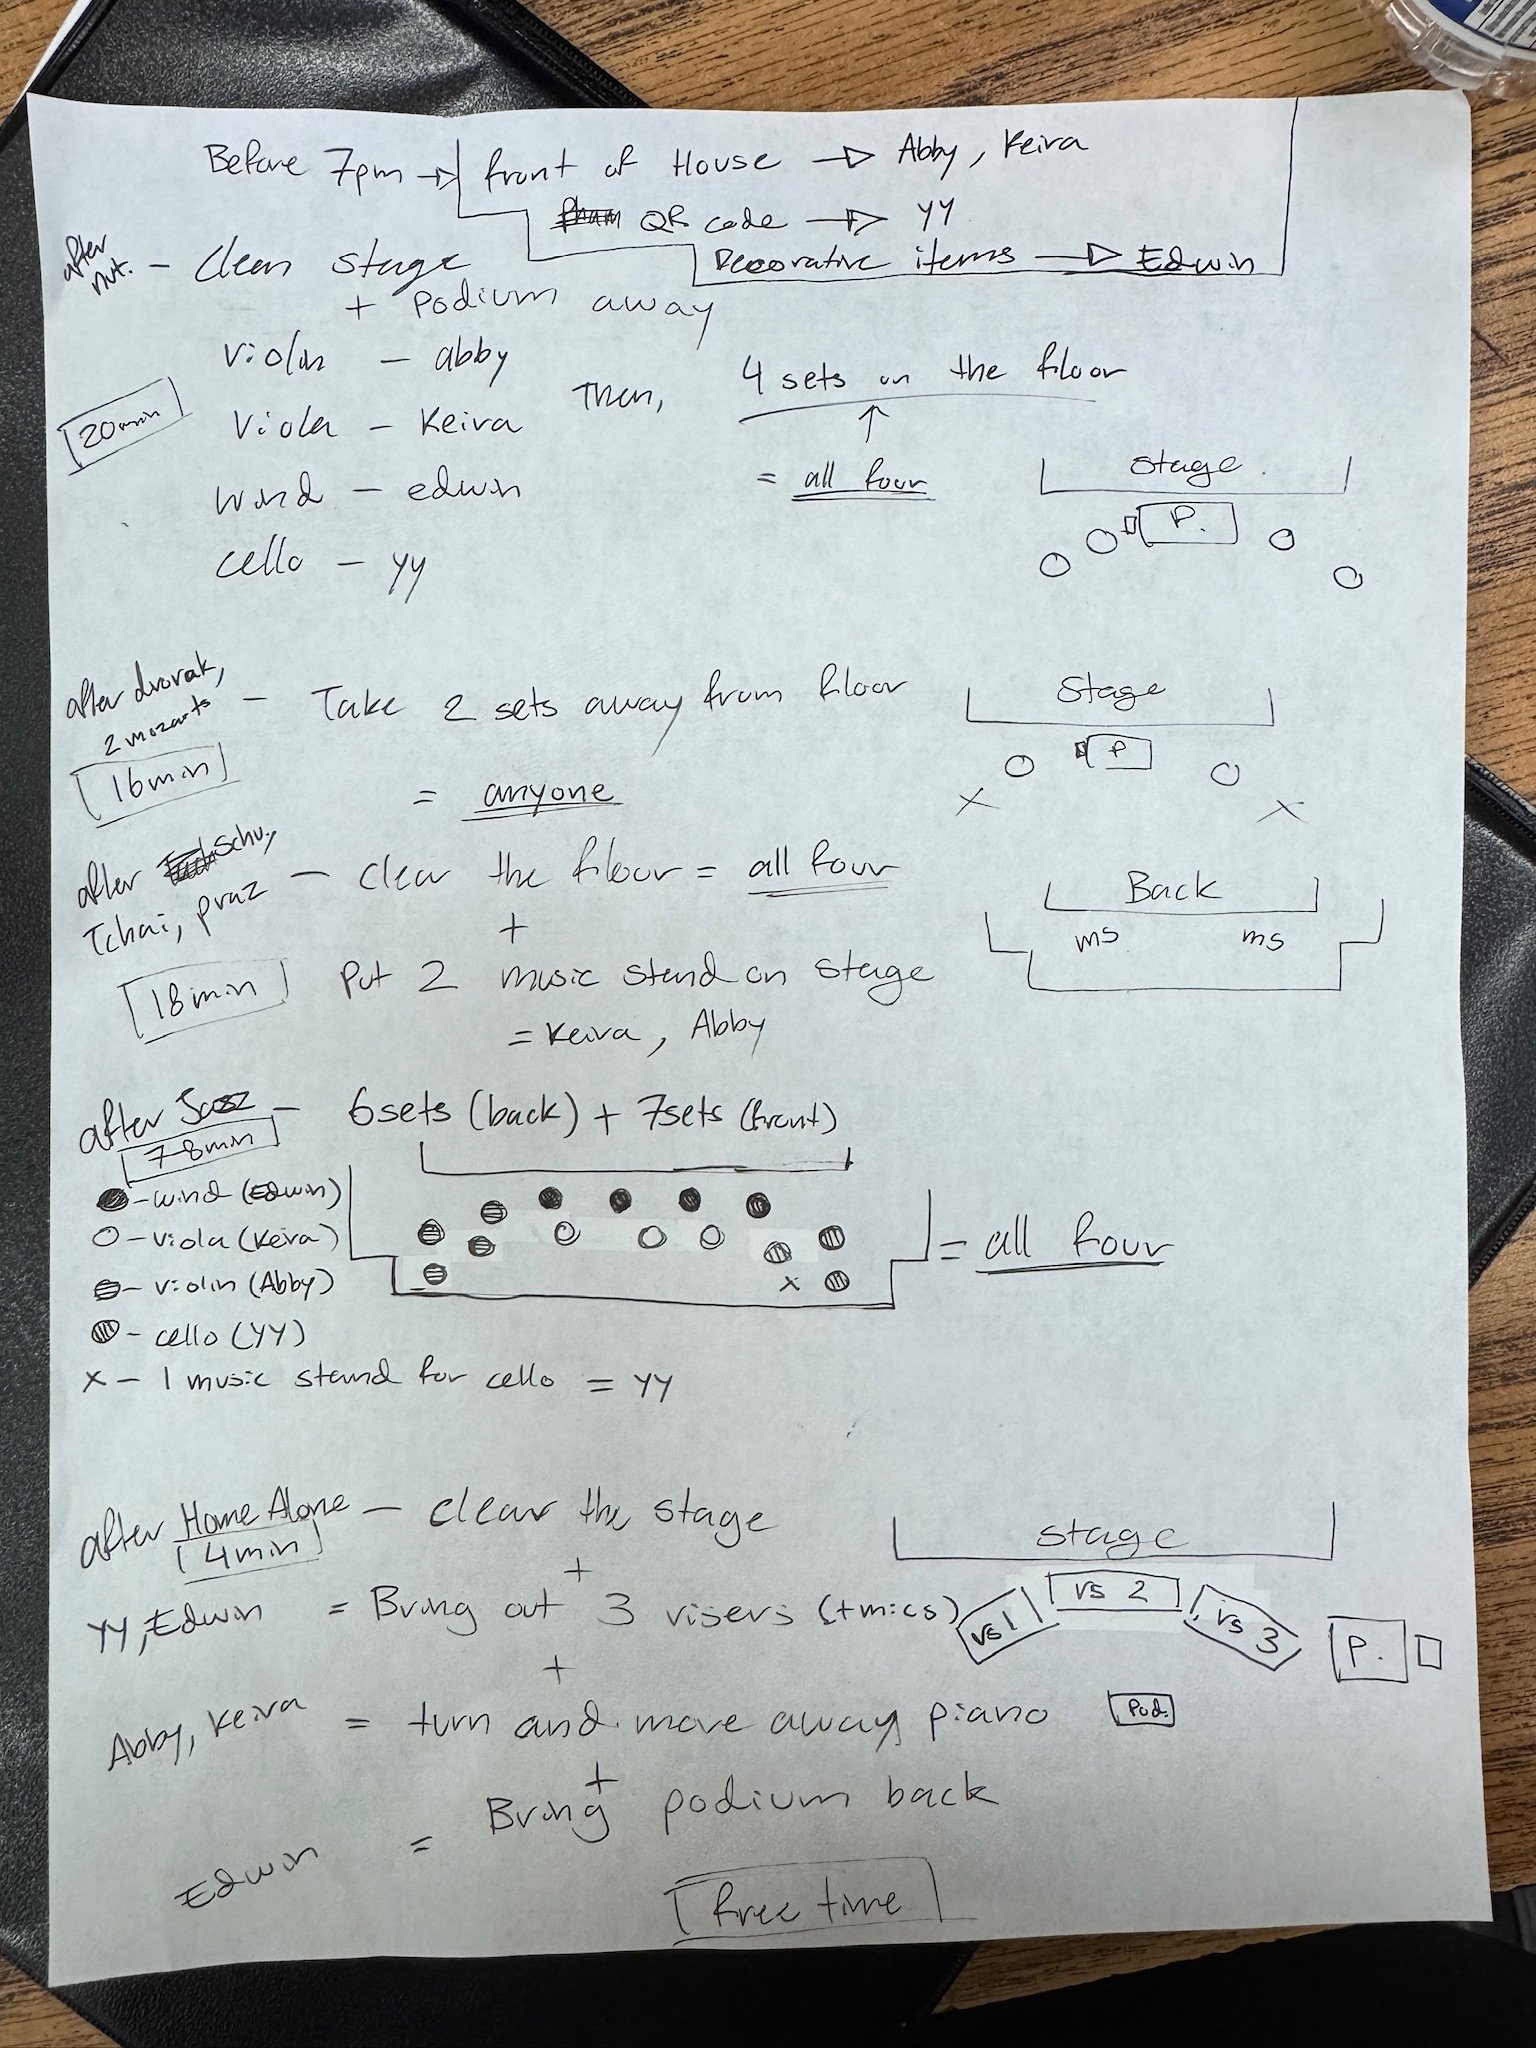 Before 7pm → front of House → Abby, Keira
QR code → YY
Decorative items → Edwin
after nut. - clean stage
+ podium away
violin - abby
Viola - Keira
wind - edwin
cello - yy
20min
Then, 4 sets on the floor
= all four
Stage
P.
after dvorak,
2 mozarts - Take 2 sets away from floor
16min
= anyone
Stage
P
after Schu,
Tchai, praz - clear the floor = all four
+
18min
Put 2 music stand on stage
= Keira, Abby
Back
ms ms
after Jazz - 6sets (back) + 7sets (front)
7-8min
- wind (Edwin)
- viola (Keira)
- violin (Abby)
- cello (YY)
x - 1 music stand for cello = YY
x
= all four
after Home Alone - clear the stage
4min
+
YY, Edwin = Bring out 3 visers (+mics)
+
Abby, Keira = turn and move away piano
+
Edwin = Bring podium back
stage
vs 1 vs 2 vs 3 P.
Pod.
free time